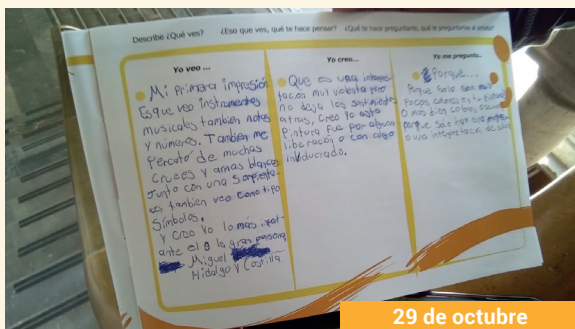 Describe ¿Qué ves? ¿Eso que ves, qué te hace pensar? ¿Qué te hace preguntarte, qué le preguntarías al artista?
Yo veo ...
Mi Primera impresión
Es que veo instrumentos
musicales tambien notas
y números. Tambien me
Percato de muchas
cruces y armas blancas
Junto con una Serpiente
tambien veo como tipo
Símbolos.
Y creo Yo lo más
ante el a la gran persona
Miguel
Hidalgo Y Costilla
Yo creo...
Que es una
muy pero
no deja los sentimientos
atras, creo Yo esta
Pintura fue por alguna
liberación o con algo
involucrado.
Yo me pregunto..
Porque...
solo son
Pocos colores
O más bien colores
porque solo hay una
o una interpretación de
29 de octubre